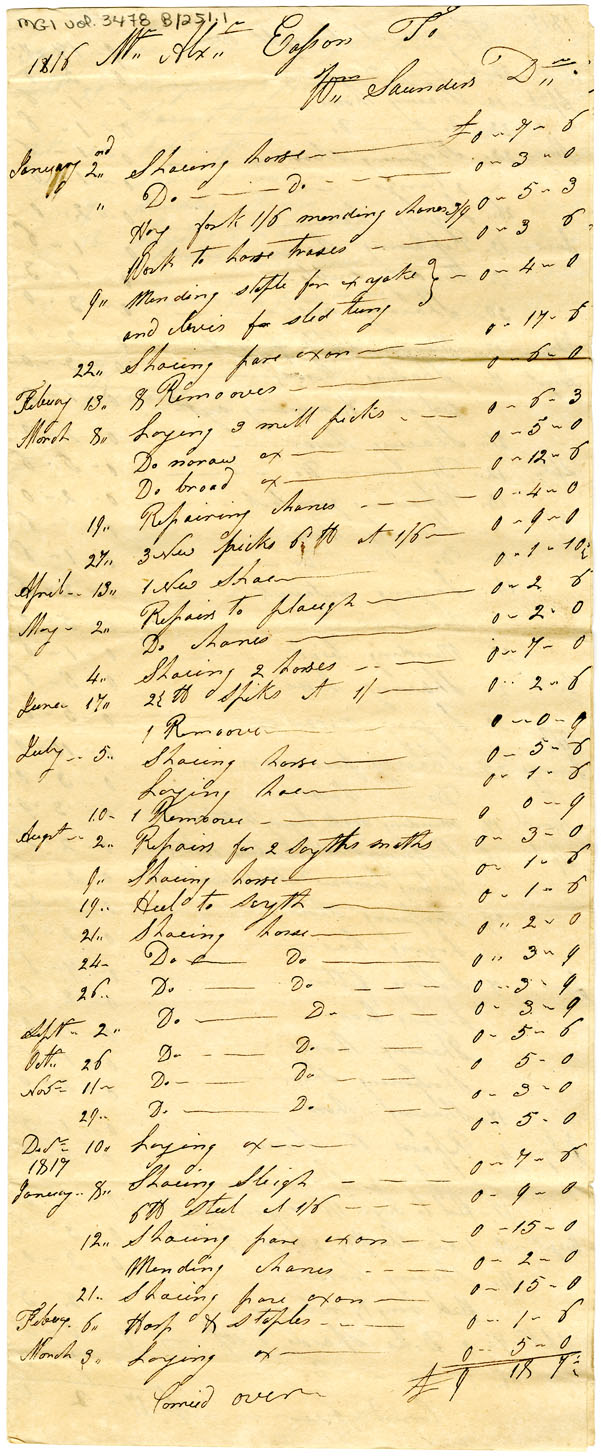 MG1 vol. 3478 B/251.1
1816 Mr. Alxr. Easson To
Wm. Saunders Dr.
January 2nd Shaeing horse £ 0 - 7 - 6
" Do Do 0 - 3 - 0
Hay fork 1/6 mending chanes 3/9 0 - 5 - 3
Work to horse trases 0 - 3 6
9 Mending staple for ox yoke } 0 - 4 - 0
and clevis for sled tung
22 Shaeing pare oxon 0 - 17 - 6
Febuary 13 8 Remooves 0 - 6 - 0
March 8 Laying 3 mill picks 0 - 6 - 3
Do noraw ax 0 - 5 - 0
Do broad ax 0 - 12 - 6
19 Repairing chanes 0 - 4 - 0
27 3 New picks 6 lb at 1/6 0 - 9 - 0
April 13 1 New Shae 0 - 1 - 10½
May 2 Repairs to plaugh 0 - 2 6
Do chanes 0 - 2 - 0
4 Shaeing 2 horses 0 - 7 - 0
June 17 2½ lb spiks at 1/ 0 - 2 - 6
1 Remoove 0 - 0 - 9
July 5 Shaeing horse 0 - 5 - 6
Laying hae 0 - 1 - 6
10 1 Remoove 0 0 - 9
Augst 2 Repairs for 2 scyths snaths 0 - 3 - 0
9 Shaeing horse 0 - 1 - 6
19 Heel to scyth 0 - 1 - 6
21 Shaeing horse 0 " 2 - 0
24 Do Do 0 " 3 - 9
26 Do Do 0 - 3 - 9
Septr 2 Do Do 0 - 3 - 9
Octr 26 Do Do 0 - 5 - 6
Novr 11 Do Do 0 5 - 0
29 Do Do 0 - 3 - 0
Decr 10 Laying ax 0 - 5 - 0
1817
January 8 Shaeing Sleigh 0 - 7 - 6
6 lb Steel at 1/6 0 - 9 - 0
12 Shaeing pare oxon 0 - 15 - 0
Mending chanes 0 - 2 - 0
21 Shaeing pare oxon 0 - 15 - 0
Febury 6 Hasp & staples 0 - 1 - 6
March 3 Laying ax 0 - 5 - 0
Carried over £ 9 18 7½